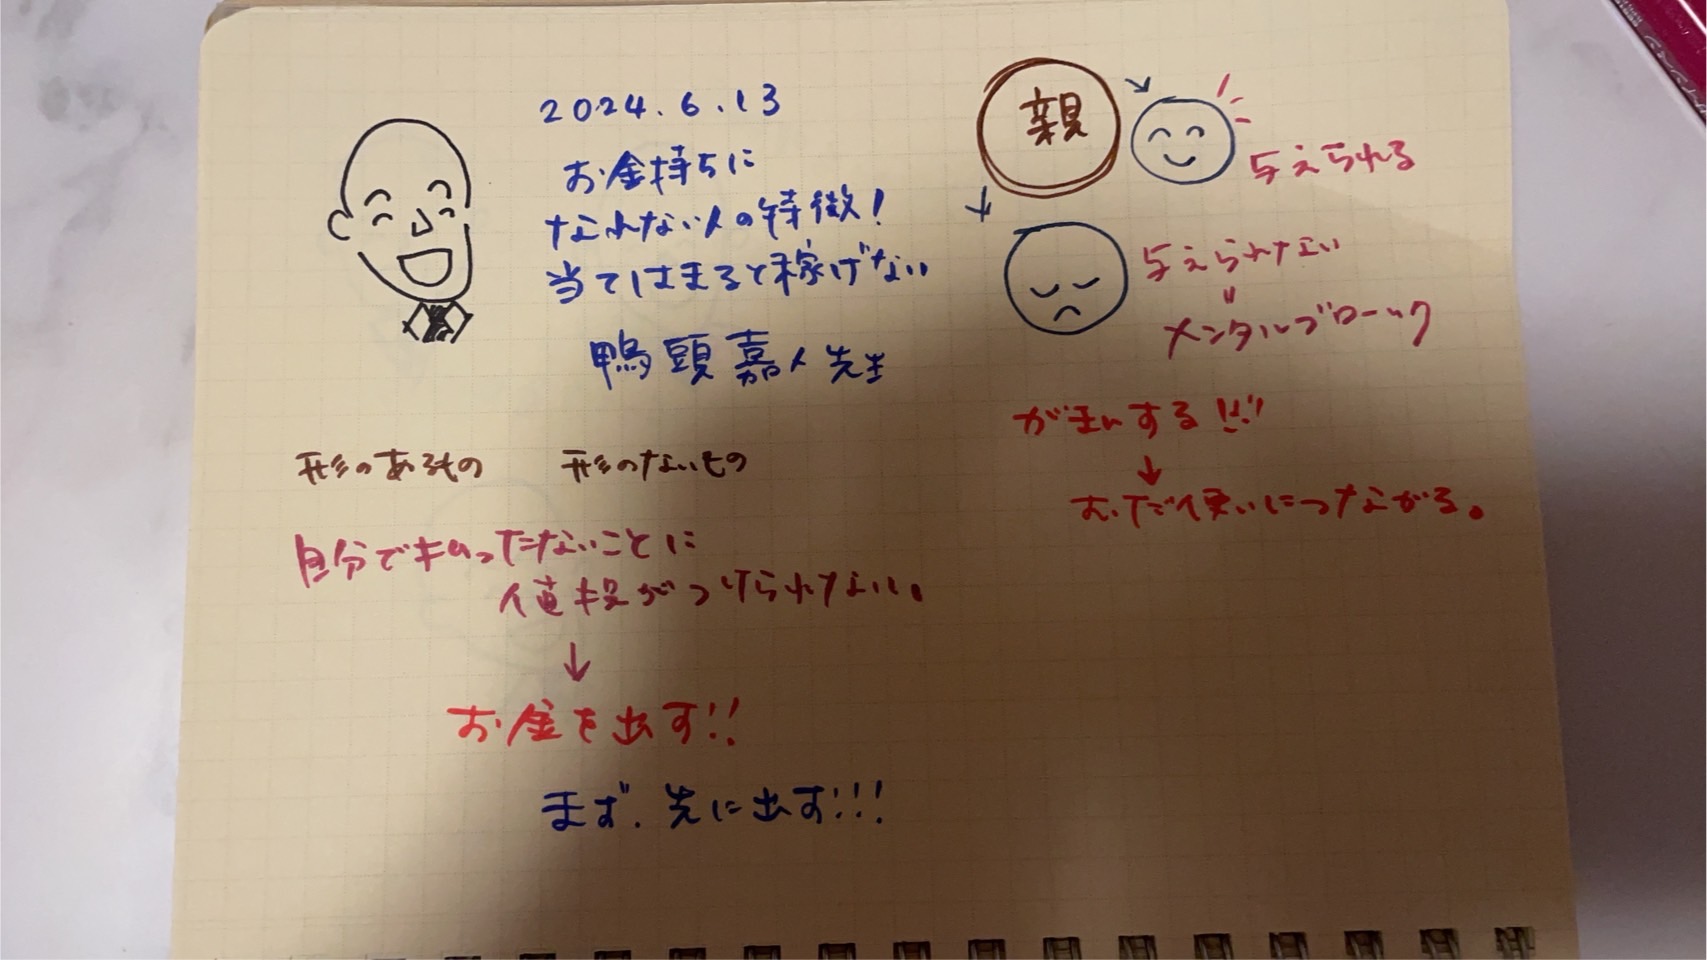 2024.6.13
お金持ちに
なれない人の特徴！
当てはまると稼げない
鴨頭嘉人先生
形のあるもの　形のないもの
自分で払ったないことに
値段がつけられない。
↓
お金を出す!!
まず、先に出す!!!
親
与えられる
与えられない
〃
メンタルブロック
がまんする!!!
↓
むだ使いにつながる。